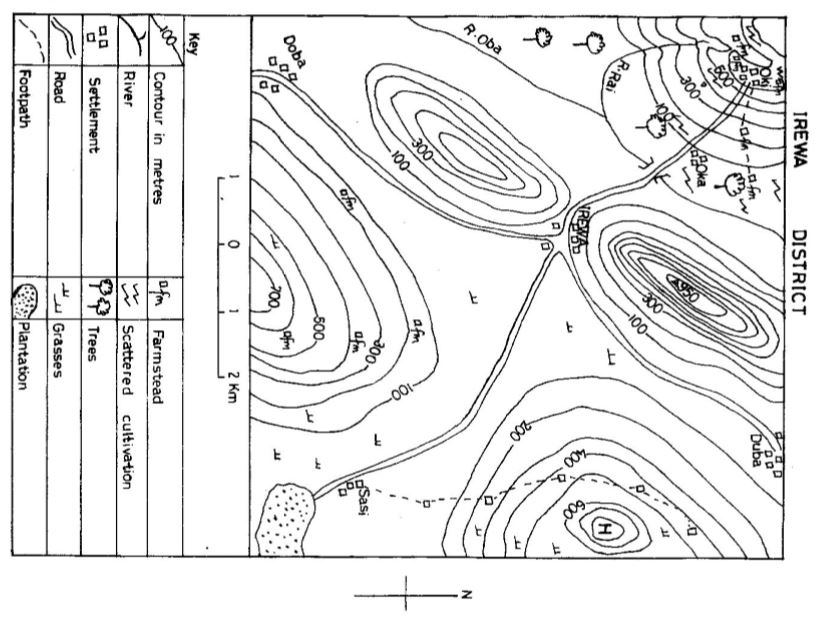 IREWA DISTRICT
Oki
fm
fm
fm
fm
500
300
100
Oka
Duba
950
300
100
R. Rai
IREWA
H
600
400
200
R. Oba
300
100
N
fm
100
300
fm
fm
Sasi
500
Doba
fm
700
1 0 1 2 Km
Key
100 Contour in metres
fm Farmstead
River
Scattered cultivation
Settlement
Trees
Road
Grasses
Footpath
Plantation